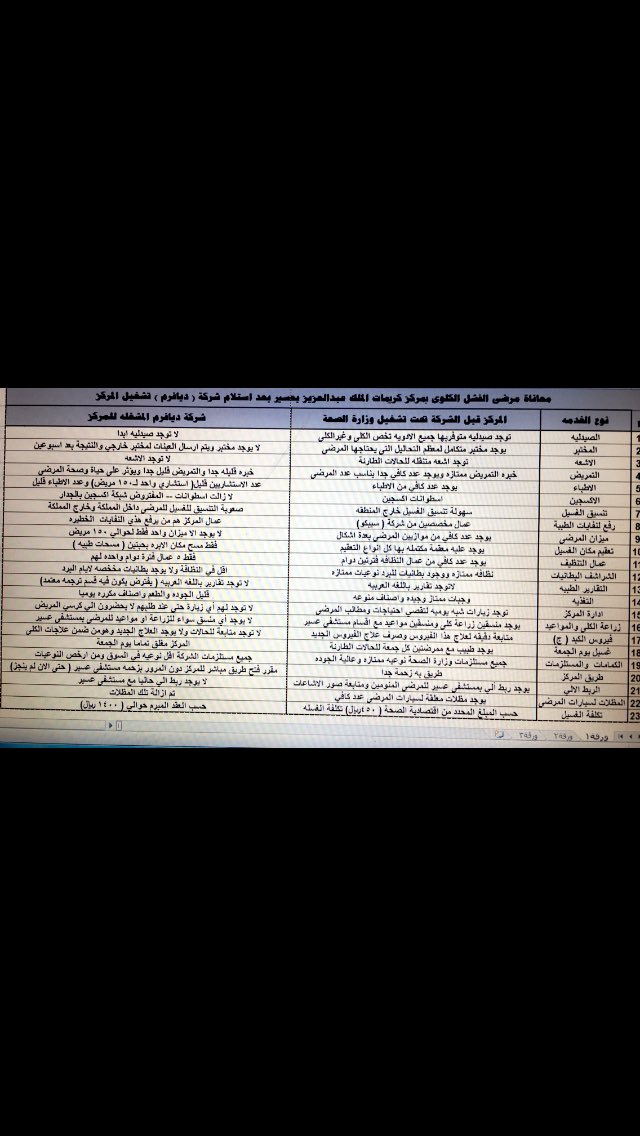 معاناة مرضى الفشل الكلوى بمركز كريمات الملك عبدالعزيز بعسير بعد استلام شركة ( ديافرم ) تشغيل المركز
م نوع الخدمه المركز قبل الشركة تحت تشغيل وزارة الصحة شركة ديافرم المشغله للمركز
1 الصيدليه توجد صيدليه متوفربها جميع الادويه تخص الكلى وغيرالكلى لا توجد صيدليه ابدا
2 المختبر يوجد مختبر متكامل لمعظم التحاليل التي يحتاجها المرضى لا يوجد مختبر ويتم ارسال العينات لمختبر خارجي والنتيجة بعد اسبوعين
3 الاشعه توجد اشعه متنقله للحالات الطارنة لا توجد الاشعه
4 التمريض خبره التمريض ممتازه ويوجد عدد كافي جدا يناسب عدد المرضى خبره قليله جدا والتمريض قليل جدا ويؤثر على حياة وصحة المرضى
5 الاطباء يوجد عدد كافي من الاطباء عدد الاستشاريين قليل( استشاري واحد لـ١٥٠ مريض) وعدد الاطباء قليل
6 الاكسجين اسطوانات اكسجين لا زالت اسطوانات – المفتروض شبكة اكسجين بالجدار
7 تنسيق الغسيل سهولة تنسيق الغسيل خارج المنطقه صعوبة التنسيق للغسيل للمرضى داخل المملكة وخارج المملكة
8 رفع لنفايات الطبية عمال مخصصين من شركة ( سيبكو) عمال المركز هم من يرفع هذي النفايات الخطيره
9 ميزان المرضى يوجد عدد كافي من موازيين المرضي بعدة اشكال لا يوجد الا ميزان واحد فقط لحوالي ١٥٠ مريض
10 تعقيم مكان الغسيل يوجد عليه معقمة مكتمله بها كل انواع التعقيم فقط مسح مكان الابره بحبتين ( مسحات طبيه )
11 عمال التنظيف يوجد عدد كافي من عمال النظافه فترتين دوام فقط ٥ عمال فترة دوام واحده لهم
12 الشراشف البطانيات نظافه ممتازه ووجود بطانيات للبرد نوعيات ممتازه اقل في النظافة ولا يوجد بطانيات مخصصه لايام البرد
13 التقارير الطبيه لاتوجد تقارير باللغه العربيه لا توجد تقارير باللغه العربيه ( يفترض يكون فيه قسم ترجمه معتمد)
14 التغذيه وجبات ممتاز وجيده واصناف منوعه قليل الجوده والطعم واصناف مكرره يوميا
15 ادارة المركز توجد زيارات شبه يوميه لتقصي احتياجات ومطالب المرضي لا توجد لهم أي زيارة حتى عند طلبهم لا يحضرون الي كرسي المريض
16 زراعة الكلى والمواعيد يوجد منسقين زراعة كلى ومنسقين مواعيد مع اقسام مستشفى عسير لا يوجد أي منسق سواء للزراعة او مواعيد للمرضي بمستشفى عسير
17 فيروس الكبد ( ج) متابعة دقيقه لعلاج هذا الفيروس وصرف علاج الفيروس الجديد لا توجد متابعة للحالات ولا يوجد العلاج الجديد وهومن ضمن علاجات الكلى
18 غسيل يوم الجمعة يوجد طبيب مع ممرضتين كل جمعة للحالات الطارنة المركز مغلق تماما يوم الجمعة
19 الكمامات والمستلزمات جميع مستلزمات وزارة الصحة نوعيه ممتازه وعالية الجوده جميع مستلزمات الشركة اقل نوعيه في السوق ومن ارخص النوعيات
20 طريق المركز طريق به زحمة جدا مقرر فتح طريق مباشر للمركز دون المرور بزحمه مستشفى عسير ( حتى الان لم ينجز)
21 الربط الالي يوجد ربط الي بمستشفى عسير للمرضي المنومين ومتابعة صور الاشاعات لا يوجد ربط الي حاليا مع مستشفى عسير
22 المظلات لسيارات المرضي يوجد مظلات مغلقة لسيارات المرضي عدد كافي تم ازالة تلك المظلات
23 تكلفة الغسيل حسب المبلغ المحدد من اقتصادية الصحة ( ٤٥٠ريال) تكلفة الغسله حسب العقد المبرم حوالي ( ١٤٠٠ ريال)
ورقة١ ورقة٢ ورقة٣